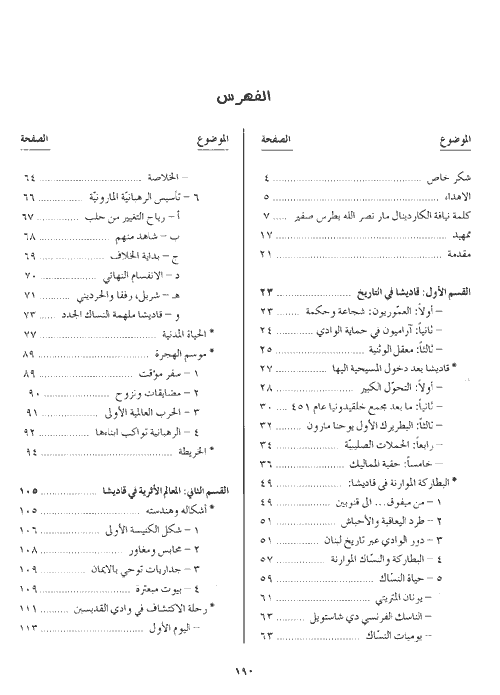 الفهرس
الموضوع الصفحة
شكر خاص ٤
الاهداء ٥
كلمة نيافة الكاردينال مار نصر الله بطرس صفير ٧
تمهيد ١٧
مقدمة ٢١
القسم الأول: قاديشا في التاريخ ٢٣
– أولاً: العمّوريون: شجاعة وحكمة ٢٣
– ثانياً: آراميون في حماية الوادي ٢٤
– ثالثاً: معقل الوثنية ٢٥
* قاديشا بعد دخول المسيحية اليها ٢٧
– أولاً: التحوّل الكبير ٢٨
– ثانياً: ما بعد مجمع خلقيدونيا عام ٤٥١ ٣٠
– ثالثاً: البطريرك الأول يوحنا مارون ٣٢
– رابعاً: الحملات الصليبيّة ٣٤
– خامساً: حقبة المماليك ٣٦
* البطاركة الموارنة في قاديشا: ٤٩
١ – من ميفوق... الى قنوبين ٤٩
٢ – طرد اليعاقبة والأحباش ٥١
٣ – دور الوادي عبر تاريخ لبنان ٥١
٤ – البطاركة والنسّاك الموارنة ٥٧
٥ – حياة النسّاك ٥٩
– يونان المتريتي ٦١
– الناسك الفرنسي دي شاستويل ٦٣
– يوميات النسّاك ٦٣
الموضوع الصفحة
– الخلاصة ٦٤
٦ – تأسيس الرهبانيّة المارونيّة ٦٦
أ – رياح التغيير من حلب ٦٧
ب – شاهد منهم ٦٨
ج – بداية الخلاف ٦٩
د – الانفسام النهائي ٧٠
هـ – شربل، رفقا والحرديني ٧١
و – قاديشا ملهمة النساك الجدد ٧٣
* الحياة المدنية ٧٧
* موسم الهجرة ٨٩
١ – سفر مؤقت ٨٩
٢ – مضايقات ونزوح ٩٠
٣ – الحرب العالمية الأولى ٩١
٤ – الرهبانية تواكب ابناءها ٩٢
* الخريطة ٩٤
القسم الثاني: المعالم الأثرية في قاديشا ١٠٥
* أشكاله وهندسته ١٠٥
١ – شكل الكنيسة الأولى ١٠٦
٢ – محابس ومغاور ١٠٨
٣ – جداريات توحي بالايمان ١٠٩
٤ – بيوت مبعثرة ١٠٩
* رحلة الاكتشاف في وادي القديسين ١١١
– اليوم الأول ١١٣
١٩٠